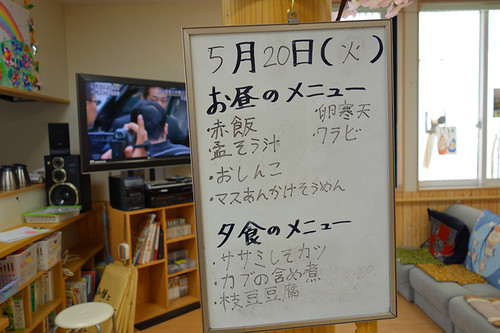 5月20日(火)
お昼のメニュー
・赤飯
・卵寒天
・孟そう汁
・ワラビ
・おしんこ
・マスあんかけそうめん
夕食のメニュー
・ササミしそカツ
・カブの含め煮
・枝豆豆腐